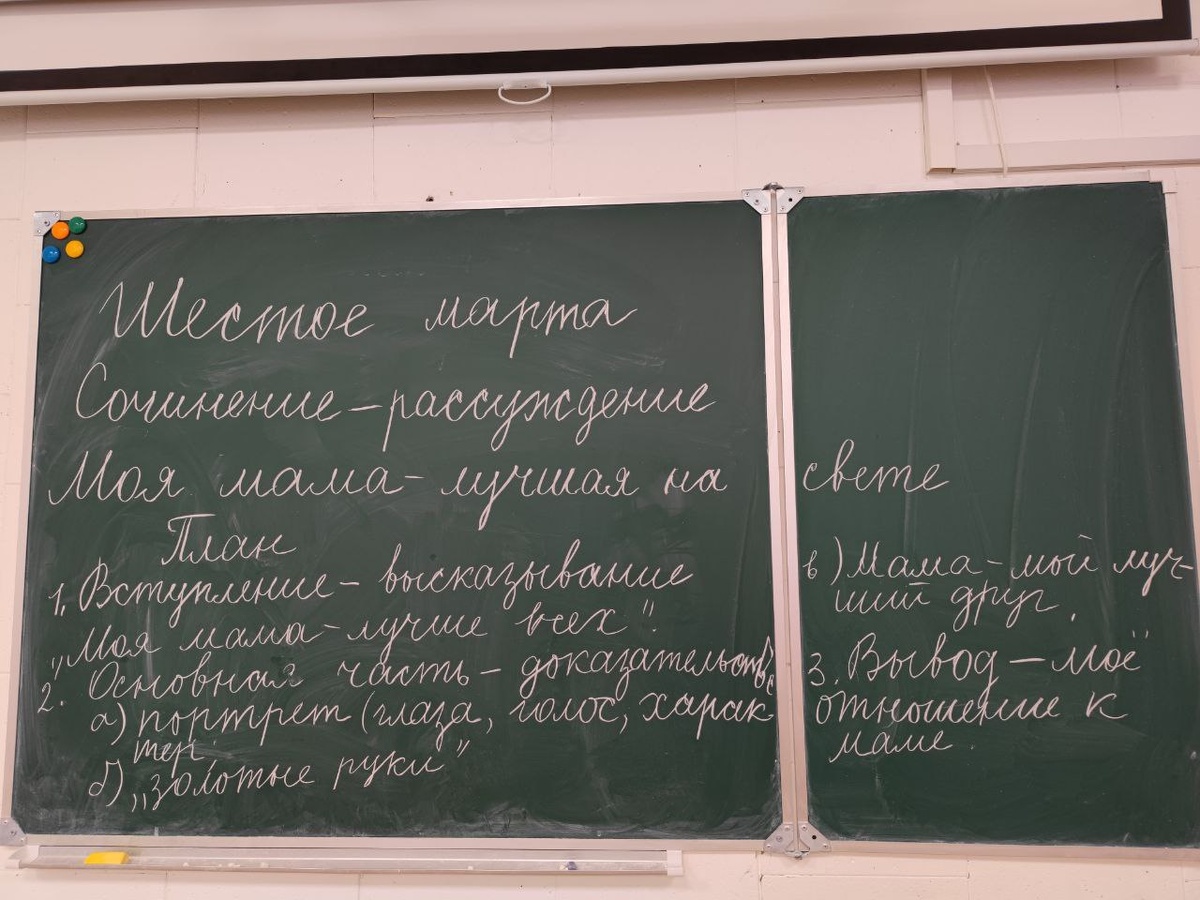 Шестое марта
Сочинение – рассуждение
Моя мама – лучшая на свете
План
1. Вступление – высказывание
„Моя мама – лучше всех".
2. Основная часть – доказательства
а) портрет (глаза, голос, харак
тер.
б) „золотые руки"
в) Мама – мой луч-
ший друг.
3. Вывод – моё
отношение к
маме.